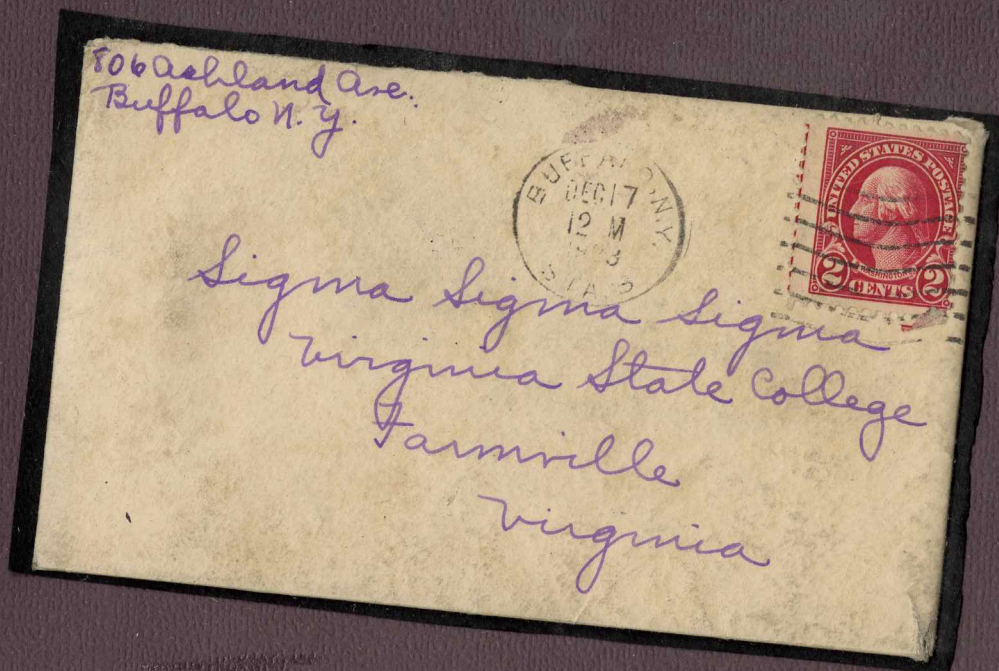 806 Ashland Ave.
Buffalo N.Y.
DEC 17
12 M
UNITED STATES POSTAGE
WASHINGTON
2 CENTS 2
Sigma Sigma Sigma
Virginia State College
Farmville
Virginia